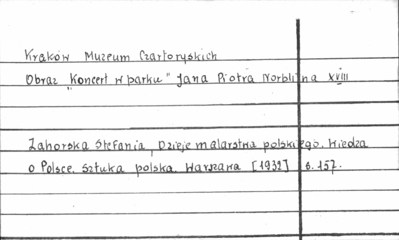 Kraków Muzeum Czartoryskich
Obraz „Koncert w parku" Jana Piotra Norblina XVIII
Zahorska Stefania, Dzieje malarstwa polskiego. Wiedza
o Polsce. Sztuka polska. Warszawa [1932] s. 157.